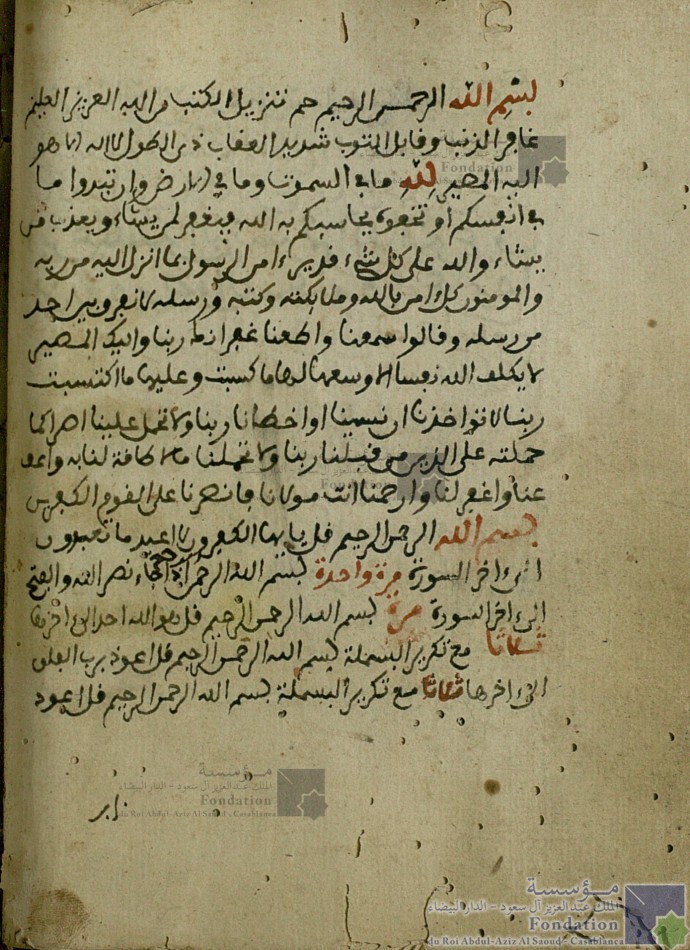 بسم الله الرحمن الرحيم حم تنزيل الكتب من الله العزيز العليم
غافر الذنب وقابل التوب شديد العقاب ذى الطول لا اله الا هو
اليه المصير لله ما في السموت وما في الارض وان تبدوا ما
في انفسكم او تخفوه يحاسبكم به الله فيغفر لمن يشاء ويعذب من
يشاء والله على كل شيء قدير امن الرسول بما انزل اليه من ربه
والمومنون كل امن بالله وملايكته وكتبه ورسله لا نفرق بين احد
من رسله وقالوا سمعنا واطعنا غفرانك ربنا واليك المصير
لا يكلف الله نفسا الا وسعها لها ما كسبت وعليها ما اكتسبت
ربنا لا تواخذنا ان نسينا او اخطانا ربنا ولا تحمل علينا اصرا كما
حملته على الذين من قبلنا ربنا ولا تحملنا ما لا طاقة لنا به واعف
عنا واغفر لنا وارحمنا انت مولانا فانصرنا على القوم الكفرين
بسم الله الرحمن الرحيم قل يايها الكفرون لا اعبد ما تعبدون
الى ءاخر السورة مرة واحدة بسم الله الرحمن الرحيم اذا جاء نصر الله والفتح
الى ءاخر السورة مرة بسم الله الرحمن الرحيم قل هو الله احد الى ءاخرها
ثلاثا مع تكرير البسملة بسم الله الرحمن الرحيم قل اعوذ برب الفلق
الى ءاخرها ثلاثا مع تكرير البسملة بسم الله الرحمن الرحيم قل اعوذ
برب
مؤسسة
الملك عبد العزيز آل سعود - الدار البيضاء
Fondation
du Roi Abdul-Aziz Al Saoud - Casablanca
مؤسسة
الملك عبد العزيز آل سعود - الدار البيضاء
Fondation
du Roi Abdul-Aziz Al Saoud - Casablanca